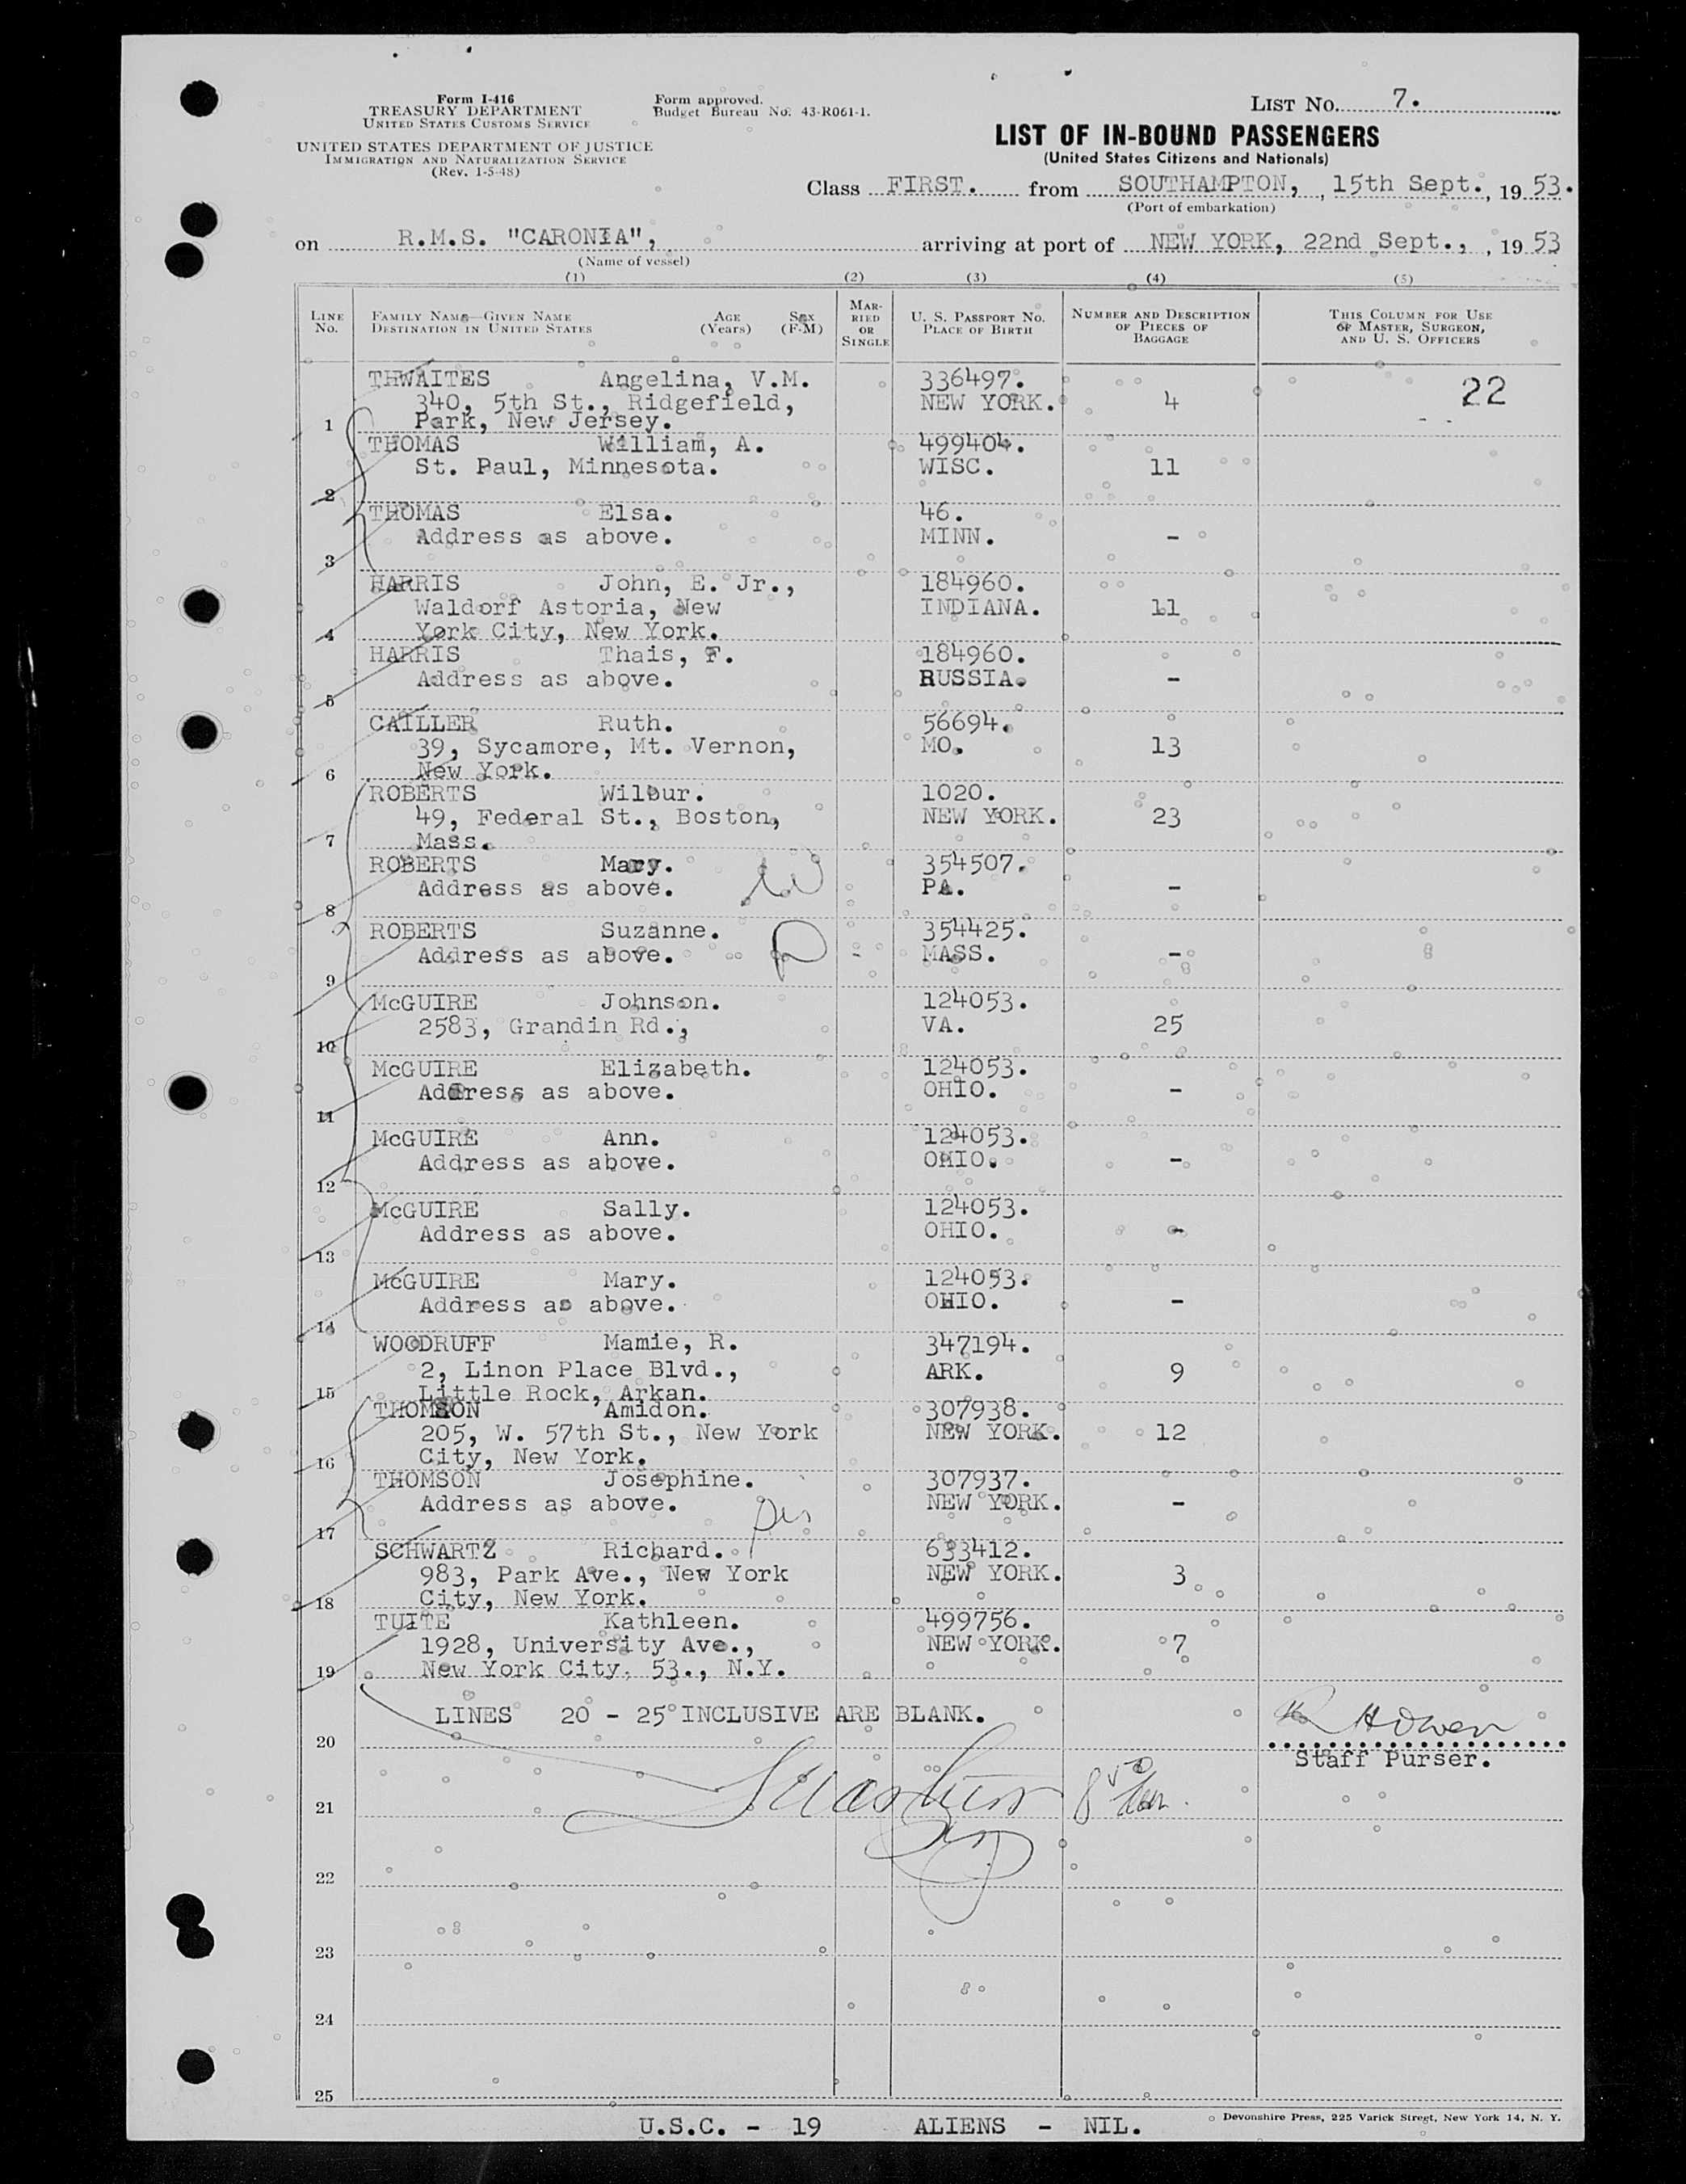 Form I-416
TREASURY DEPARTMENT
UNITED STATES CUSTOMS SERVICE
UNITED STATES DEPARTMENT OF JUSTICE
IMMIGRATION AND NATURALIZATION SERVICE
(Rev. 1-5-48)
Form approved.
Budget Bureau No. 43-R061-1.
LIST NO. 7.
LIST OF IN-BOUND PASSENGERS
(United States Citizens and Nationals)
Class FIRST. from SOUTHAMPTON, , 15th Sept. , 19 53.
(Port of embarkation)
on R.M.S. "CARONIA", arriving at port of NEW YORK, 22nd Sept., , 19 53
(Name of vessel)
(1) (2) (3) (4) (5)
LINE No. FAMILY NAME—GIVEN NAME DESTINATION IN UNITED STATES AGE (Years) SEX (F-M) MARRIED OR SINGLE U. S. PASSPORT NO. PLACE OF BIRTH NUMBER AND DESCRIPTION OF PIECES OF BAGGAGE THIS COLUMN FOR USE OF MASTER, SURGEON, AND U. S. OFFICERS
THWAITES Angelina, V.M. 336497. 22
340, 5th St., Ridgefield, NEW YORK. 4
1 Park, New Jersey.
THOMAS William, A. 499404.
St. Paul, Minnesota. WISC. 11
2
THOMAS Elsa. 46.
Address as above. MINN. -
3
HARRIS John, E. Jr., 184960.
Waldorf Astoria, New INDIANA. 11
4 York City, New York.
HARRIS Thais, F. 184960.
Address as above. RUSSIA. -
5
CAILLER Ruth. 56694.
39, Sycamore, Mt. Vernon, MO. 13
6 New York.
ROBERTS Wilbur. 1020.
49, Federal St., Boston, NEW YORK. 23
7 Mass.
ROBERTS Mary. 354507.
Address as above. PA. -
8
ROBERTS Suzanne. 354425.
Address as above. MASS. -
9
McGUIRE Johnson. 124053.
2583, Grandin Rd., VA. 25
10
McGUIRE Elizabeth. 124053.
Address as above. OHIO. -
11
McGUIRE Ann. 124053.
Address as above. OHIO. -
12
McGUIRE Sally. 124053.
Address as above. OHIO. -
13
McGUIRE Mary. 124053.
Address as above. OHIO. -
14
WOODRUFF Mamie, R. 347194.
2, Linon Place Blvd., ARK. 9
15 Little Rock, Arkan.
THOMSON Amidon. 307938.
205, W. 57th St., New York NEW YORK. 12
16 City, New York.
THOMSON Josephine. 307937.
Address as above. NEW YORK. -
17
SCHWARTZ Richard. 633412.
983, Park Ave., New York NEW YORK. 3
18 City, New York.
TUITE Kathleen. 499756.
1928, University Ave., NEW YORK. 7
19 New York City, 53., N.Y.
LINES 20 - 25 INCLUSIVE ARE BLANK.
20
Staff Purser.
21
22
23
24
25
U.S.C. - 19 ALIENS - NIL.
Devonshire Press, 225 Varick Street, New York 14, N. Y.